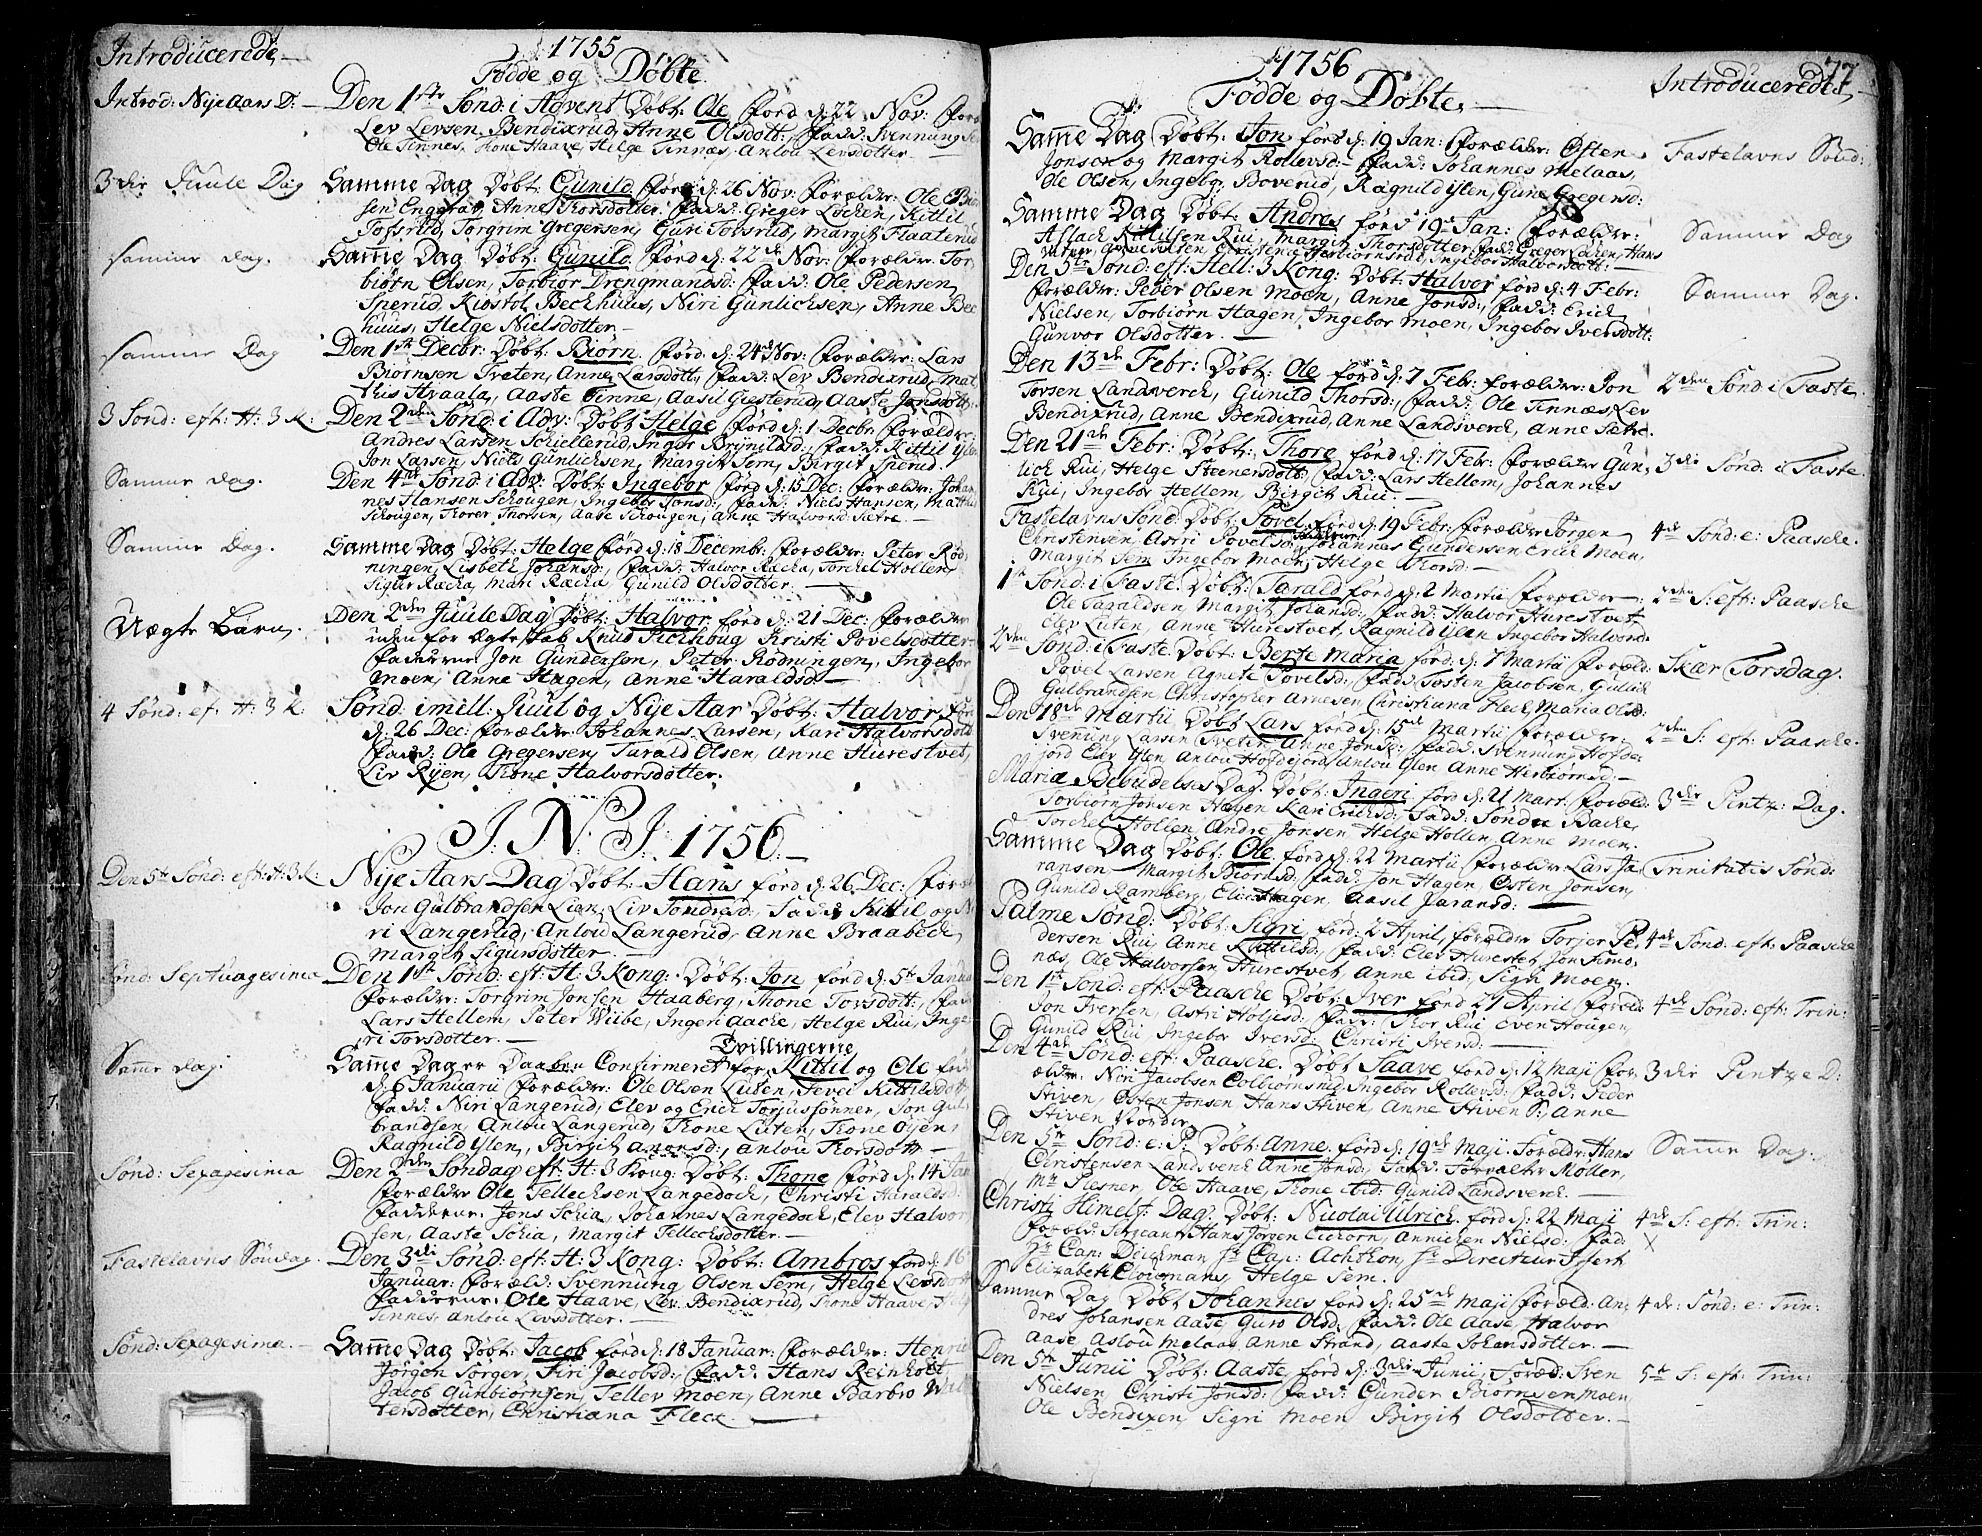 Introducerede
1755
Fødde og Døbte
Introd: Nye Aars D:
Den 1ste Sønd: i Advent Døbt: Ole Førd d. 22 Nov:
Lev Levsen, Bendixrud, Anne Olsdott: Fadd: Svennung
Ole Tinnes, Thone Haave, Helge Tinnæs, Anlou Levsdotter.
3die Juule Dag
Samme Dag Døbt: Gunild Førd d. 26 Nov: Forældre: Ole
sen Enggrav, Anne Thorsdotter. Fadd: Greger Løcken, Kittil
Tofsrud, Torgrim Gregersen, Guri Tofsrud, Margit Flaaterud
samme dag.
Samme Dag Døbt: Gunild, Førd d: 22de Nov: Forældre: Tor-
biørn Olsen, Torbiør Drengmansd: Fadd: Ole Pedersen
Sperud, Kiøstol Bechhuus, Niri Gunlichsen, Anne Bec
huus, Helge Nielsdotter.
samme Dag
Den 1ste Decbr: Døbt: Biørn. Førd d: 24 Nov: Forældre: Lars
Biørnsen Tveten, Anne Larsdott: Fadd: Lev Bendixrud, Mat
this Hvaala, Aaste Tinne, Aasil Giesterud, Aaste Jonsdott:
3 Sønd: eft: H: 3 K:
Den 2den Sønd: i Adv: Døbt Helge Førd d: 1 Decbr: Forældre
Andres Larsen Schiellerud, Inger Brynildsd: Fadd: Kittil
Jon Larsen, Niels Gunlichsen, Margit Sem, Birgit Sperud.
Samme dag.
Den 4de Sønd: i Adv: Døbt: Ingebor førd d: 15 Dec: Forældre: Johan
nes Hansen Schougen, Ingebor Jonsd: Fadd: Niels Hansen,
Schougen, Thorer Thorsen, Aase Schougen, Anne Halvorsd: Sætre.
Samme Dag.
Samme Dag Døbt: Helge Førd d: 18 Decemb: Forældre: Peter Rød
ningen, Lisbeth Johansd: Fadd: Halvor Racka, Torchel Hollen,
Sigur Racka, Mari Racka Gunild Olsdotter.
Uægte Barn.
Den 2den Juule Dag Døbt: Halvor førd d: 21 Dec: Forældre
uden for Ægteskab Knud Fichhoug Kristi Povelsdotter
Fadderne Jon Gundersen, Peter Rødningen, Ingebor
Moen, Anne Hagen, Anne Haraldsd:
4 Sønd: ef: H: 3 K:
Sønd: imill: Juul og Nye Aar Døbt: Halvor
d. 26 Dec: Forældre: Johannes Larsen, Kari Halvorsdott
Fadd: Ole Gregersen, Tarald Olsen, Anne Hurestvet,
Liv Ryen, Thone Halvorsdotter.
J. N. J. 1756.
Den 5te Sønd: eft: H: 3 K:
Nye Aars Dag Døbt: Hans førd d: 26 Dec:
Jon Gulbrandsen Lien, Liv Sondresd: Fadd Kittil og N
ri Langerud, Anlou Langerud, Anne Braabeck
Margit Sigursdotter.
Sønd: Septuagesima
Den 1ste Sønd: eft: H: 3 Kong: Døbt: Jon førd d. 5te Janua
Forældre: Torgrim Jonsen Haaberg, Thone Torsdott:
Lars Hellem, Peter Wiibe, Ingeri Aache, Helge Rui, Inge-
ri Torsdotter.
Samme dag.
Tvillingerne
Samme Dag er Daaben Confirmeret for Kittil og Ole
d: 6 Januarii Forældre: Ole Olsen Luten, Jevei Kittilsdott
Fadd: Niri Langerud, Elev og Erich Torjussønner, Jon Gul-
brandsen, Anlou Langerud, Thone Luten, Thone Øyen,
Ragnild Ylen, Birgit Amonsd: Anlou Thorsdott
Sønd: Sexagesima
Den 2den Søndag eft: H: 3 Kong: Døbt: Thone førd d. 14 Jan
Forældre Ole Tellechsen Langedoch, Christi Haraldsd:
Fadderne: Jens Schia, Johannes Langedoch, Elev Halvor
sen, Aaste Schia, Margit Tellechsdotter.
Fastelavns Søndag.
Den 3die Sønd: eft: H: 3 Kong: Døbt: Ambros førd d. 16
Januar: Foræld: Svennung Olsen Sem, Helge Levsdott
Fadderne: Ole Haave, Lev Bendixrud, Thone Haave,
Tinnes, Anlou Levsdotter.
Sønd: Sexagesima.
Samme Dag Døbt: Jacob førd d: 18 Januar: Forældre: Henric
Jørgen Sørger, Siri Jacobsd: Fadd: Hans Reinholt
Jacob Gunbiørnsen, Tellev Moen, Anne Barbro Wal
tersdotter, Christiana Fleck.
1756
Fødde og Døbte
Introducerede
77
Samme Dag Døbt: Jon førd d: 19 Jan: Forældre: Østen
Jonsen og Margit Rollevsd: Fadd: Johannes Melaas,
Ole Olsen, Ingeb: Boverud, Ragnild Ylen, Gune Gregersd:
Fastelavns Sønd:
Samme Dag Døbt: Andres førd 19de Jan: Forældre:
Aslack Kittilsen Rui, Margit Thorsdotter Fadd: Greger Løcken, Hans
Christensen Herbiørnsrud, Ingebor Halvorsdott:
Samme Dag
Den 5te Sønd: eft: Hell: 3 Kong: Døbt: Halvor førd d: 4 Febr:
Forældre: Peder Olsen Moen, Anne Jonsd: Fadd: Erich
Nielsen, Torbiørn Hagen, Ingebor Moen, Ingebor Iversdott:
Gunvor Olsdotter.
Samme Dag.
Den 13de Febr: Døbt: Ole førd d: 7 Febr: Forældre: Jon
Torsen Landsverch, Gunild Thorsd: Fadd: Ole Tinnæs, Lev
Bendixrud, Anne Bendixrud, Anne Landsverch, Anne Sætre.
2den Sønd: i Faste.
Den 21de Febr: Døbt: Thore førd d: 17 Febr: Forældre Gun-
lich Rui, Helge Steenersdott: Fadd: Lars Hellem, Johannes
Rui, Ingebor Hellem, Birgit Rui.
3die Sønd: i Faste.
Fastelavns Sønd: Døbt: Povel førd d: 19 Febr: Forældre Jørgen
Christensen, Astri Povelsd: Fadderne Johannes Gundersen Erich Moen,
Margit Sem Ingebor Moen, Helge Thorsd:
4de Sønd: e: Paasche.
1te Sønd: i Faste. Døbt: Tarald førd d: 2 Martii forældre:
Ole Taraldsen, Margit Johansd: Fadd: Halvor Hurestvet,
Elev Luten, Anne Hurestvet, Ragnild Ylen Ingebor Halvorsd:
2den S: eft: Paasche
2den Sønd: i Faste. Døbt: Berte Maria førd d: 7 Martii foræld:
Povel Larsen Agnete Povelsd: Fadd: Tosten Jacobsen, Gulich
Gulbrandsen Christopher Arnesen Christiana Fleck, Maria Olsd:
Skær Torsdag.
Den 18de Martii Døbt Lars førd d: 15de Martii forældre:
Svenung Larsen Tveten, Anne Jonsd: Fadd: Svennung Hofde-
jord Elev Ylen, Anlou Hofdejord, Anlou Ylen Anne Herbiørnsd:
2den S: eft: Paasche.
Mariæ Bebudelses Dag. Døbt: Ingeri førd d: 21 Mart: foræld:
Torbiørn Jonsen Hagen Kari Erichsd: Fadd: Søndre Bache,
Torchel Hollen, Andre Jonsen, Helge Hollen, Anne Moen.
3die Pintz: Dag.
Samme Dag Døbt: Ole, førd d: 22 Martii Forældre Lars Ja-
ransen Margit Biørnsd: Fadd: Jon Hagen, Østen Jonsen,
Gunild Ramberg, Eli Hagen, Aasil Jaransd:
Trinitatis Sønd:
Palme Sønd: Døbt: Sigri førd: 2 April, forældre Torjer Pe-
dersen Rui, Anne Kittilsd: Fadd: Elev Hurestvet, Jon
næs, Ole Halvorsen Hurestvet, Anne ibid, Sigri Moen.
4de Sønd: eft: Paasche
Den 1te Sønd: eft: Paasche Døbt: Iver førd 21 April foræld:
Jon Iversen, Astri Holjesd: Fadd: Thor Rui Even Hougen,
Gunild Rui Ingebor Iversd: Christi Iversd:
4de Sønd: eft: Trin:
Den 4de Sønd: eft: Paasche. Døbt Saave førd d: 12 Maji for-
ældre: Niri Jacobsen Colbiørnsrud, Ingebor Rollevsd: Fadd: Peder
Stiven, Østen Jonsen Hans Stiven, Anne Stiven S: Anne
Stiven Nordre
3die Pintze D:
Den 5te Sønd: e: P: Døbt: Anne, førd d: 19de Maji. Foræld: Hans
Christensen Landsverch Anne Jonsd: Fadd: Forvalter Møller,
Mr Plesner, Ole Haave, Thone ibid: Gunild Landsverch.
Samme Dag.
Christi Himelf: Dag: Døbt: Nicolai Ulrich, førd d: 22 Maji
Foræld: Sergeant Hans Jørgen Eichorn, Annichen Nielsd: Fad:
Hr Cap: Deichman Hr Cap: Achthon, Hr Directeur Jssert
Elizabeth Cloumans, Helge Sem.
4de S: eft: Trin:
X
Samme Dag Døbt Johannes førd d: 25de Maji foræld: An-
dres Johansen Aase Guro Olsd: Fadd: Ole Aase, Halvor
Aase, Aslou Melaas, Anne Strand, Aaste Johansdotter.
4de: Sønd: e: Trin:
Den 5te Junii Døbt: Aaste, førd d: 3die Junii, Foræd: Sven
Nielsen, Christi Jonsd: Fadd: Gunder Biørnsen Moen,
Ole Bendixen, Sigri Moen Birgit Olsdotter.
5te S: eft: Trin: